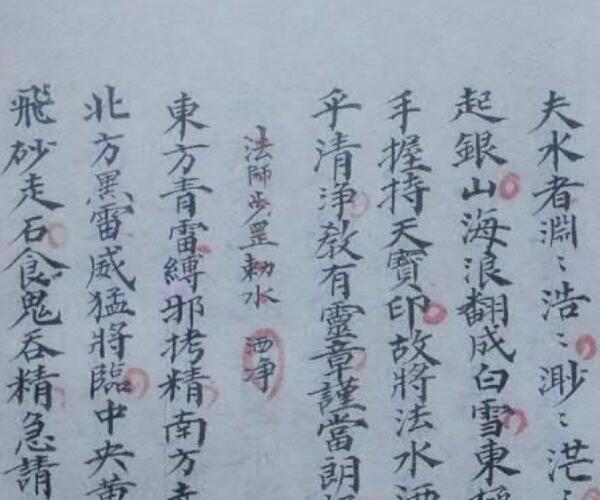 夫水者淵〻浩〻渺〻茫
起銀山海浪翻成白雪東
手握持天寶印故將法水
乎清淨教有靈章謹當朗
法師步罡勅水 洒净
東方青雷縛邪拷精南方
北方黑雷威猛將臨中央黃
飛砂走石食鬼吞精急請